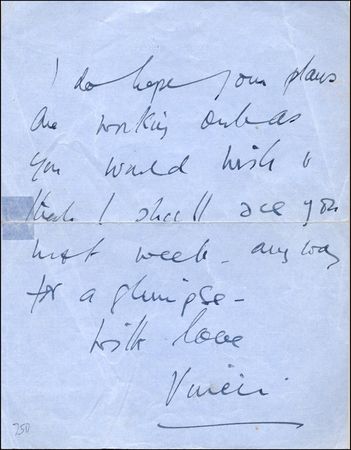 I do hope your plans
are working out as
you would wish &
that I shall see you
next week - any way
for a glimpse -
with love
Vivien
750